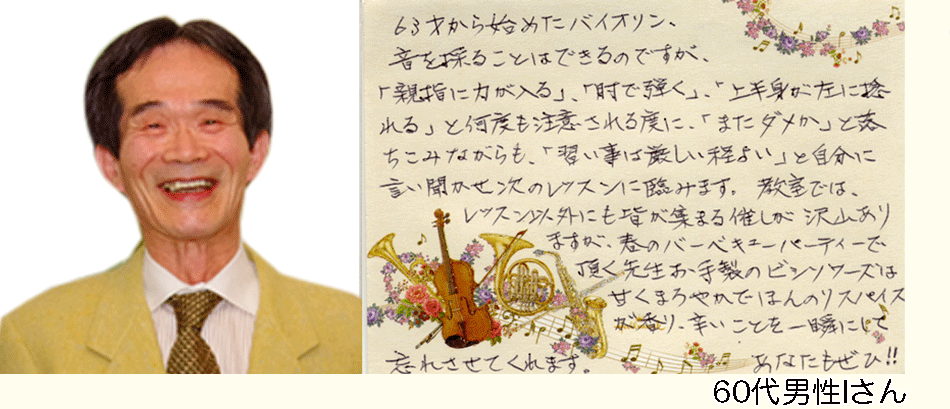 63才から始めたバイオリン、
音を採ることはできるのですが、
「親指に力が入る」、「肘で弾く」、「上半身が左に捻
れる」と何度も注意される度に、「またダメか」と落
ちこみながらも、「習い事は厳しい程よい」と自分に
言い聞かせ次のレッスンに臨みます。教室では、
レッスン以外にも皆が集まる催しが沢山あり
ますが、春のバーベキューパーティーで
頂く先生お手製のビシソワーズは
甘くまろやかでほんのりスパイス
が香り、辛いことを一瞬にして
忘れさせてくれます。 あなたもぜひ!!
60代男性Iさん